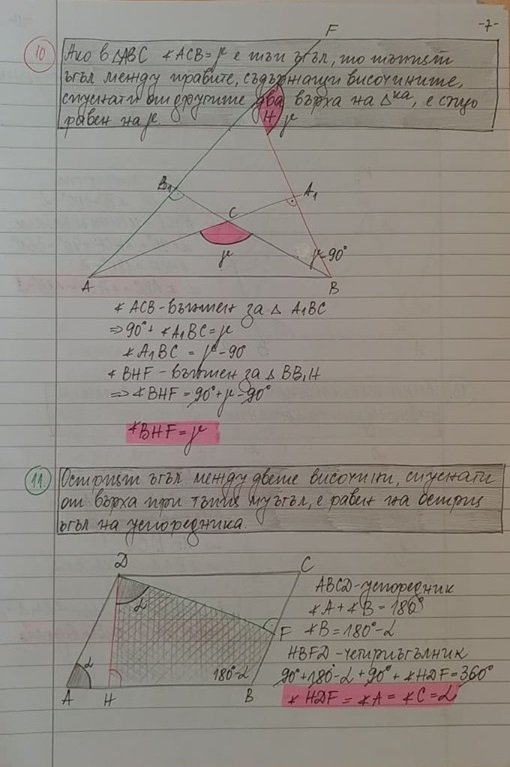 -7-
10 Ако в △ABC ∢ACB=γ е тъп ъгъл, то тъпият
ъгъл между правите, съдържащи височините,
спуснати от другите два върха на △ка, е също
равен на γ.
F
H
γ
B₁
C
A₁
γ
γ-90°
A
B
∢ACB-външен за △ A₁BC
⇒90°+∢A₁BC=γ
∢A₁BC = γ-90
∢BHF-външен за △ BB₁H
⇒∢BHF=90°+γ-90°
∢BHF=γ
11. Острият ъгъл между двете височини, спуснати
от върха при тъпия му ъгъл, е равен на острия
ъгъл на успоредника.
D
C
α
F
α
180°-α
A
H
B
ABCD-успоредник
∢A+∢B=180°
∢B=180°-α
HBFD-четириъгълник
90°+180-α+90°+∢HDF=360°
∢HDF=∢A=∢C=α